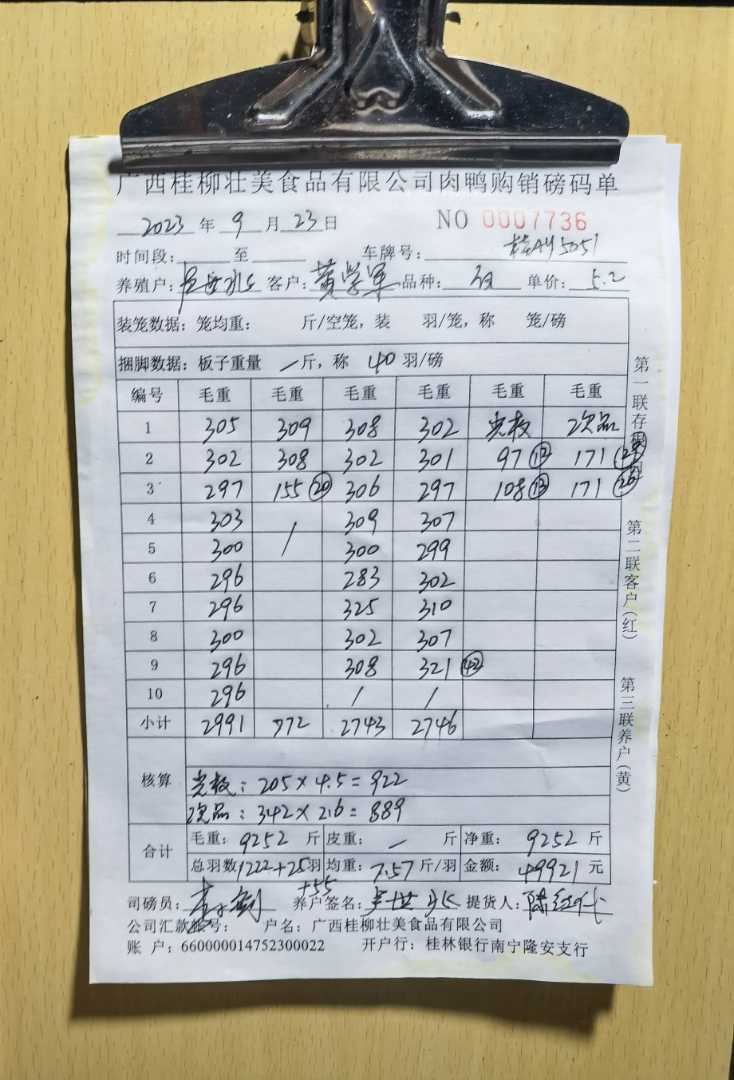 广西桂柳壮美食品有限公司肉鸭购销磅码单
2023年9月23日 NO 0007736
时间段: 至 车牌号: 5051
养殖户: 客户:黄学军 品种: 单价:5.2
装笼数据:笼均重: 斤/空笼,装 羽/笼,称 笼/磅
捆脚数据:板子重量 /斤,称 40羽/磅
编号 毛重 毛重 毛重 毛重 毛重 毛重
1 305 309 308 302 光板 次品
2 302 308 302 301 97 ⑫ 171
3 297 155 ⑳ 306 297 108 ⑬ 171
4 303 / 309 307
5 300 300 299
6 296 283 302
7 296 325 310
8 300 302 307
9 296 308 321 ㊷
10 296 / /
小计 2991 772 2743 2746
核算
光板:205×4.5=922
次品:342×2.6=889
合计
毛重:9252斤 皮重:/斤 净重:9252斤
总羽数1222+25羽 均重:7.57斤/羽 金额:49921元
+55
司磅员: 养户签名: 提货人:陈红代
公司汇款账号: 户名:广西桂柳壮美食品有限公司
账 户:660000014752300022 开户行:桂林银行南宁隆安支行
第一联存根
第二联客户(红)
第三联养户(黄)